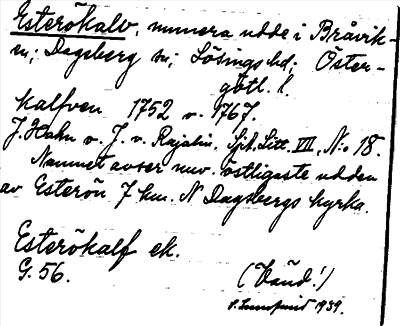 Esterökalv, numera udde i Bråvik-
en; Dagsberg sn; Lösings hd; Öster-
götl. l.
Kalfven 1752 o. 1767.
J. Hahn o. J. v. Rajalin. Sjök. Litt. VII, N:o 18.
Namnet avser nuv. östligaste udden
av Esterön 7 km. N Dagsbergs kyrka.
Esterökalf ek.
G. 56.
(Vänd!)
1939.